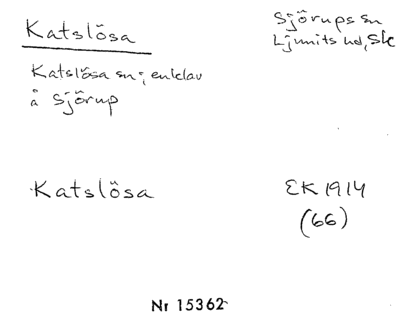 Katslösa
Sjörups sn
Ljunits hd, Sk
Katslösa sn:, enklav
å Sjörup
Katslösa
EK 1914
(66)
Nr 15362